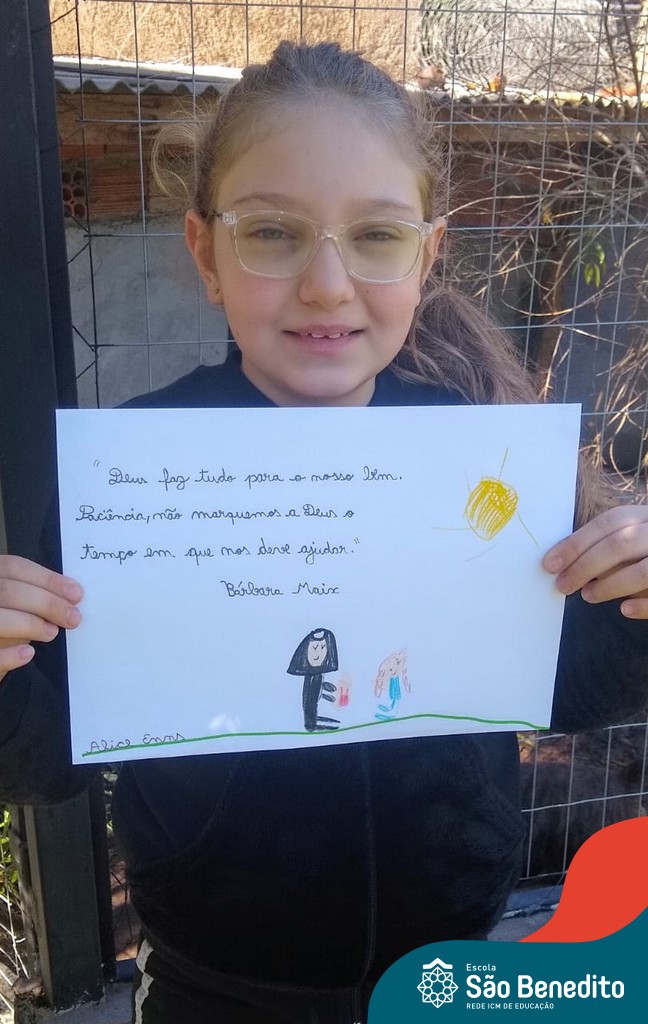 "Deus faz tudo para o nosso bem.
Paciência, não marquemos a Deus o
tempo em que nos deve ajudar."
Bárbara Maix
Alice Enns
Escola
São Benedito
REDE ICM DE EDUCAÇÃO